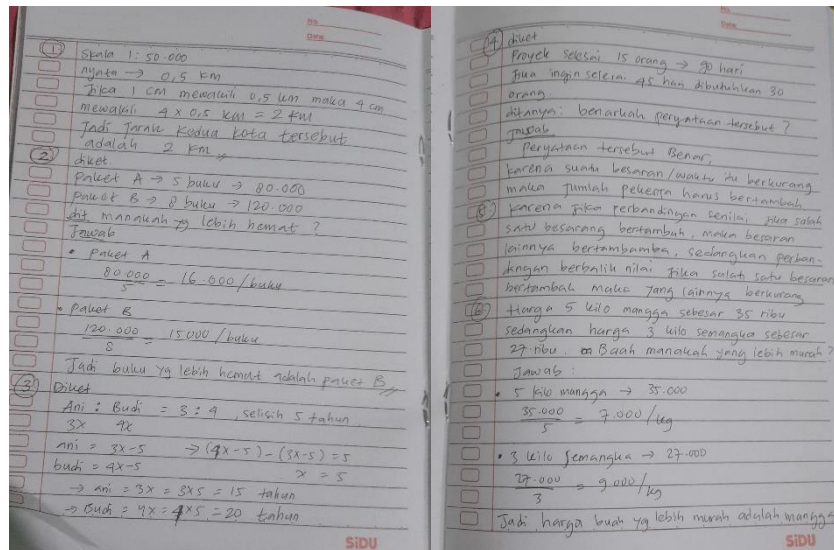 No.
Date
① Skala 1 : 50.000
nyata → 0,5 km
Jika 1 cm mewakili 0,5 km maka 4 cm
mewakili 4 x 0,5 km = 2 km
Jadi Jarak kedua kota tersebut
adalah 2 km
② diket.
paket A → 5 buku → 80.000
paket B → 8 buku → 120.000
dit manakah yg lebih hemat ?
Jawab
• paket A
80.000 / 5 = 16.000 / buku
• paket B
120.000 / 8 = 15000 / buku
Jadi buku yg lebih hemat adalah paket B
③ Diket
Ani : Budi = 3 : 4 , selisih 5 tahun
3x 4x
ani = 3x-5 → (4x-5) - (3x-5) = 5
budi = 4x-5 x = 5
→ ani = 3x = 3x5 = 15 tahun
→ Budi = 4x = 4x5 = 20 tahun
SiDU
No.
Date
④ diket
Proyek selesai 15 orang → 90 hari
Jika ingin selesai 45 hari dibutuhkan 30
orang.
ditanya : benarkah peryataan tersebut ?
Jawab
Peryataan tersebut Benar,
karena suatu besaran/waktu itu berkurang
maka Jumlah pekerja harus bertambah
karena jika perbandingan senilai jika salah
satu besarang bertambah, maka besaran
lainnya bertambamba, sedangkan perban-
dengan berbalik nilai Jika salah satu besaran
bertambah maka yang lainnya berkurang
⑥ Harga 5 kilo mangga sebesar 35 ribu
sedangkan harga 3 kilo semangka sebesar
27 ribu. Baah manakah ynng lebih murah ?
Jawab :
• 5 kilo mangga → 35.000
35.000 / 5 = 7.000 / kg
• 3 kilo semangka → 27.000
27.000 / 3 = 9000 / kg
Jadi harga buah yg lebih murah adalah mangga
SiDU